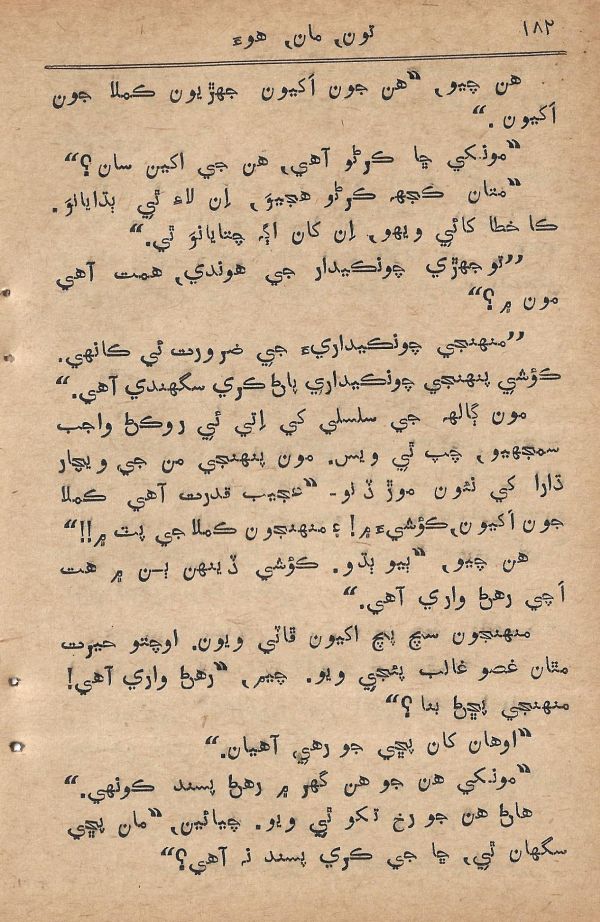 ١٨٢
تون, مان, هوءَ
هن چيو, “هن جون اَکيون جهڙيون ڪملا جون
اَکيون.“
“مونکي ڇا ڪرڻو آهي, هن جي اکين سان؟“
“متان ڪجهہ ڪرڻو هجيوَ, اِن لاءِ ئي ٻڌايانوَ.
ڪا خطا کائي ويهو, اِن کان اڳہ چتايانوَ ٿي.“
”توجهڙي چونڪيدار جي هوندي, همت آهي
مون ۾؟“
”منهنجي چونڪيداريءَ جي ضرورت ئي ڪانهي.
ڪؤشي پنهنجي چونڪيداري پاڻ ڪري سگهندي آهي.“
مون ڳالهہ جي سلسلي کي اِتي ئي روڪڻ واجب
سمجهيو, چپ ٿي ويس. مون پنهنجي من جي ويچار
ڌارا کي نئون موڙ ڏنو- “عجيب قدرت آهي ڪملا
جون اَکيون, ڪؤشيءَ ۾! ۽ منهنجون ڪملا جي پٽ ۾!!“
هن چيو, “ٻيو ٻڌو. ڪؤشي ڏينهن ٻن ۾ هت
اَچي رهڻ واري آهي.“
منهنجون سچ پچ اکيون ڦاٽي ويون. اوچتو حيرت
مٿان غصو غالب پئجي ويو. چيم, “رهڻ واري آهي!
منهنجي پڇڻ بنا؟“
“اوهان کان پڇي جو رهي آهيان.“
“مونکي هن جو هن گهر ۾ رهڻ پسند ڪونهي.“
هاڻ هن جو رخ تکو ٿي ويو. چيائين, “مان پڇي
سگهان ٿي, ڇا جي ڪري پسند نہ آهي؟“